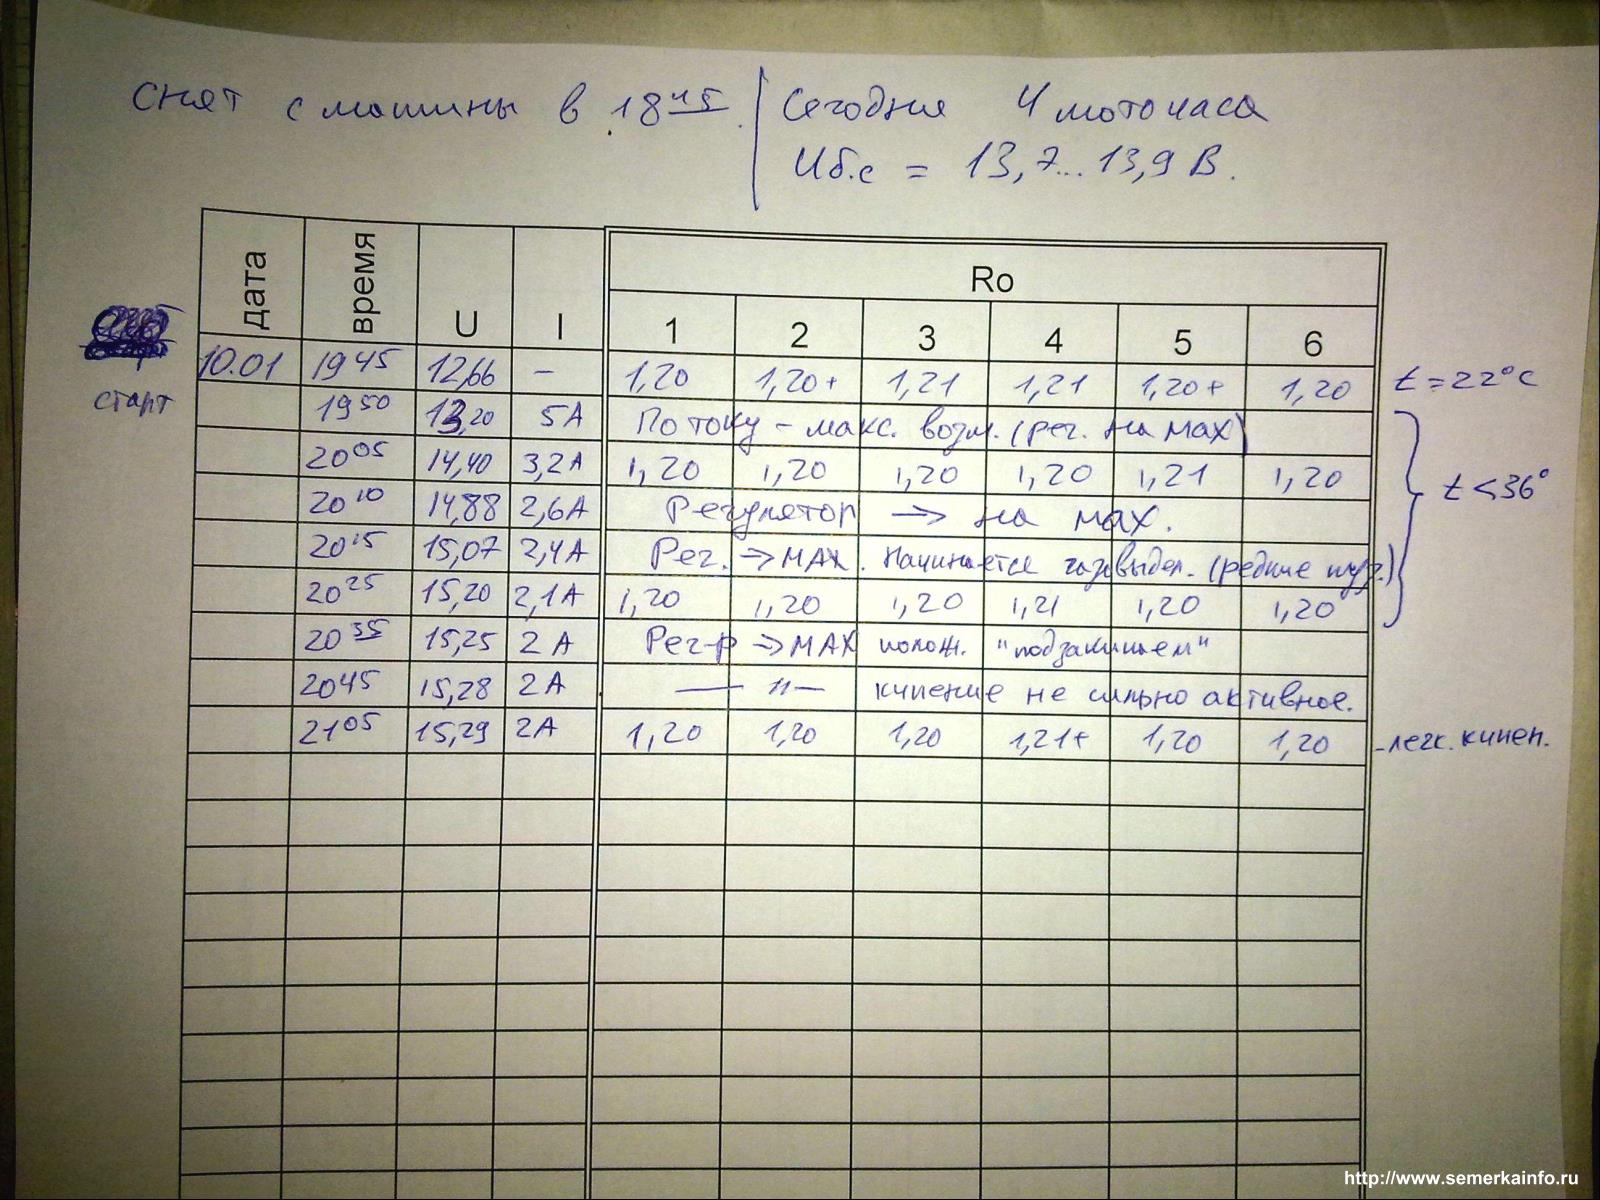 Снят с машины в 18 45 | Сегодня 4 моточаса
Uб.с = 13,7...13,9 В.
дата время U I Ro
1 2 3 4 5 6
10.01 19 45 12,66 – 1,20 1,20+ 1,21 1,21 1,20+ 1,20 t = 22°C
старт 19 50 13,20 5А По току – макс. возм. (рег. на мах)
20 05 14,40 3,2А 1,20 1,20 1,20 1,20 1,21 1,20 t < 36°
20 10 14,88 2,6А Регулятор → на мах.
20 15 15,07 2,4А Рег. → МАХ. Начинается газовыдел. (редкие пуз.)
20 25 15,20 2,1А 1,20 1,20 1,20 1,21 1,20 1,20
20 35 15,25 2 А Рег-р → МАХ полож. "подзакипаем"
20 45 15,28 2 А — " — кипение не сильно активное.
21 05 15,29 2А 1,20 1,20 1,20 1,21+ 1,20 1,20 - легк. кипен.
http://www.semerkainfo.ru